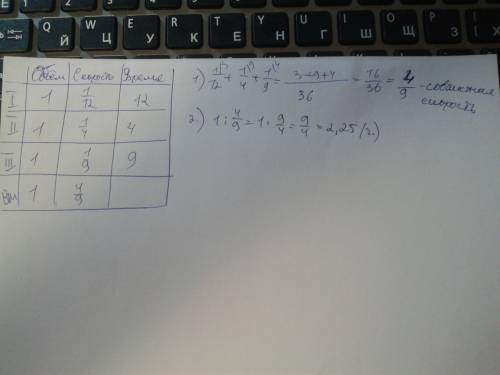 Q W E R T Y U I O P
Й Ц У К Е Н Г Ш Щ З
Объём Скорость Время
I 1 1/12 12
II 1 1/4 4
III 1 1/9 9
Вм 1 4/9
1) 1/12 + 1/4 + 1/9 = 3+9+4/36 = 16/36 = 4/9 - совместная скорость
2) 1 : 4/9 = 1 · 9/4 = 9/4 = 2,25 (ч.)